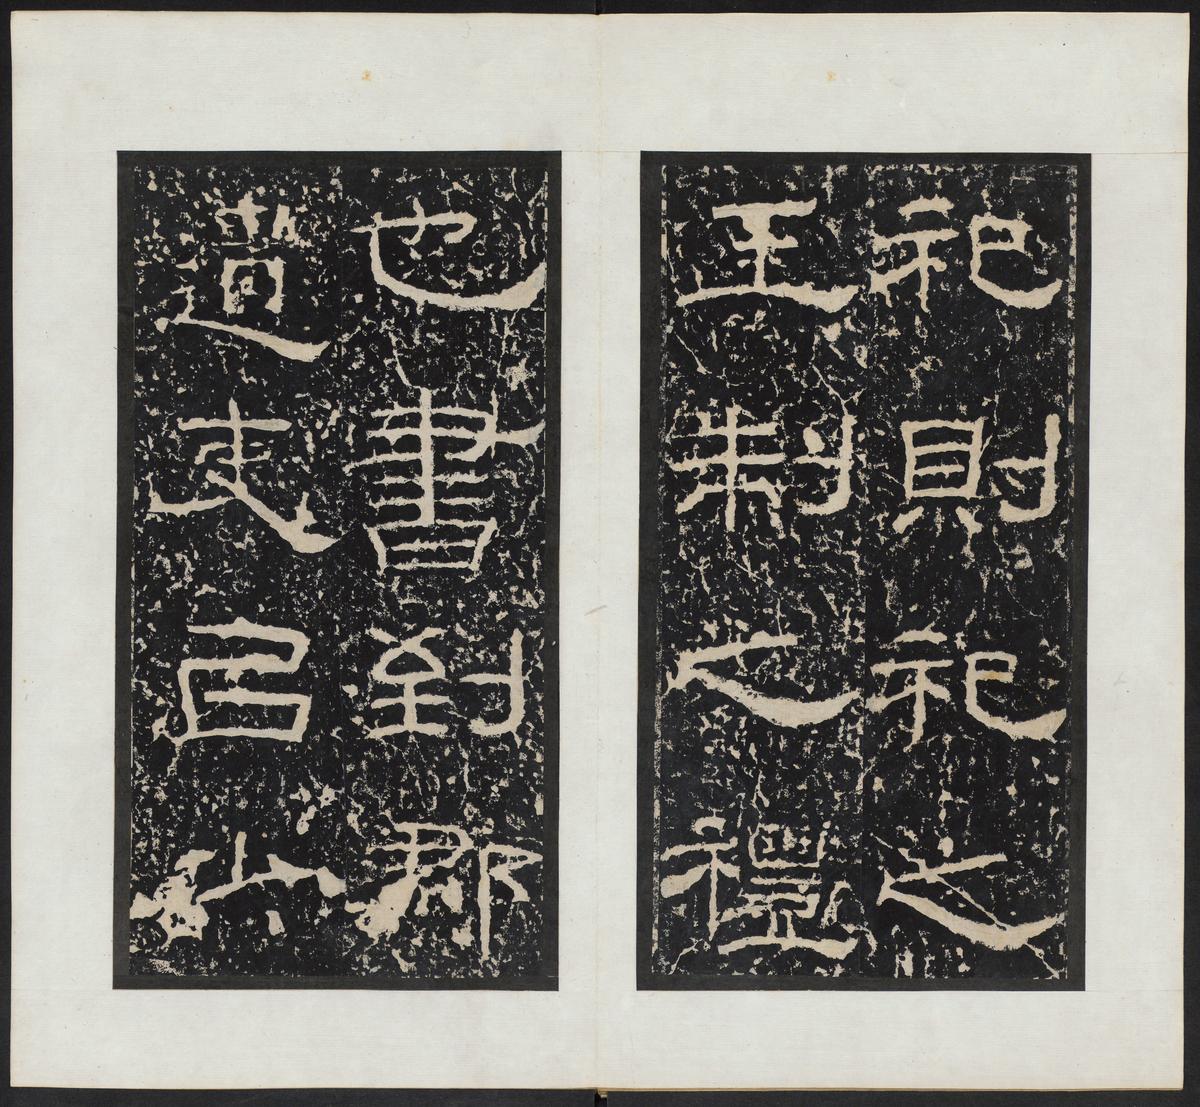 祀則祀之
王制之禮
也書到郡
遣吏㠯少